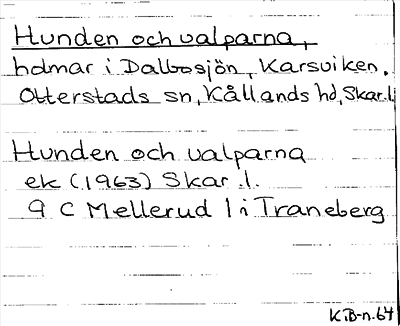 Hunden och valparna,
hdmar i Dalbosjön, Karsviken,
Otterstads sn, Kållands hd, Skar.l.
Hunden och valparna
ek (1963) Skar.l.
9 C Mellerud 1 i Traneberg
KiB-n. 64